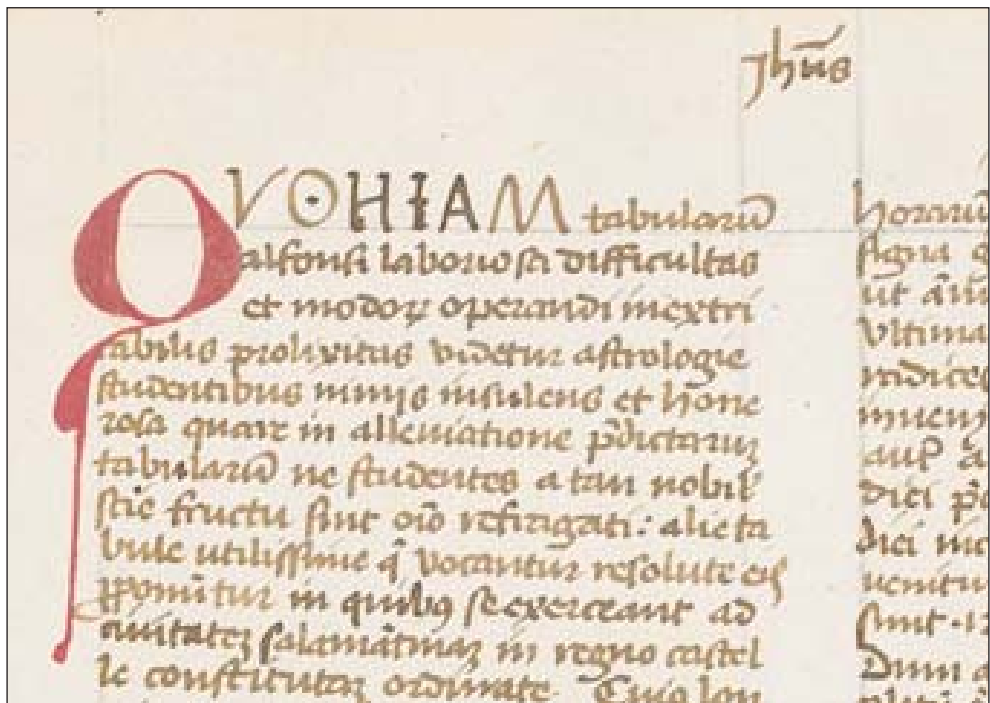 jhūs
QVOHIAM tabularū
alfonsi laboriosa difficultas
et modoꝝ operandi inextri
cabilis prolixitas videtur astrologie
studentibus nimis insulens et hone
rosa quare in alleuiatione p̄dictaruꝫ
tabularū ne studentes a tan nobil
stie fructu sint oīo refrigati: alie ta
bule utilissime q̄ vocantur resolute eis
ꝓponūtur in quibꝫ se exerceant ad
ciuitateꝫ salamātinaꝫ in regno castel
le constitutaꝫ ordinate Cuiꝰ lon
horarū
signa
ut
Ultima
radices
inueni
dici
diei
uenitu
sunt
Dum